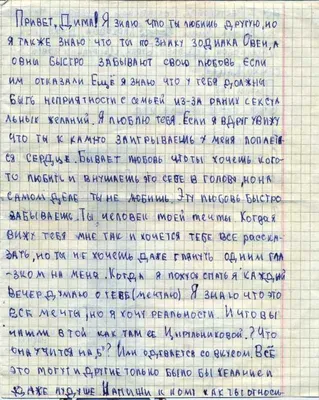 Привет, Дима! Я знаю что ты любишь другую, но
я также знаю что ты по знаку зодиака Овен, а
овны быстро забывают свою любовь если
им отказали Ещё я знаю что у тебя должны
быть неприятности с семьей из-за раних сексуа
льных желаний. Я люблю тебя Если я вдруг увижу
что ты к камно заигрываешь у меня лопает
ся сердце. Бывает любовь что ты хочешь кого-
то любить и внушаешь это себе в голову, но на
самом деле ты не любишь. Эту любовь быстро
забываешь. Ты человек моей мечты Когда я
вижу тебя мне так и хочется тебе всё расска-
зать, но ты не хочешь даже глянуть одним гла
зком на меня. Когда я ложусь спать я каждый
вечер думаю о тебе (мечтаю) Я знаю что это
всё мечты, но я хочу реальности И что вы
нашли в той как там её Цирульниковой? Что
она учится на 5? Или одевается со вкусом. Всё
это могут и другие только было бы желание и
даже лучше Напиши к кому как ты относи-